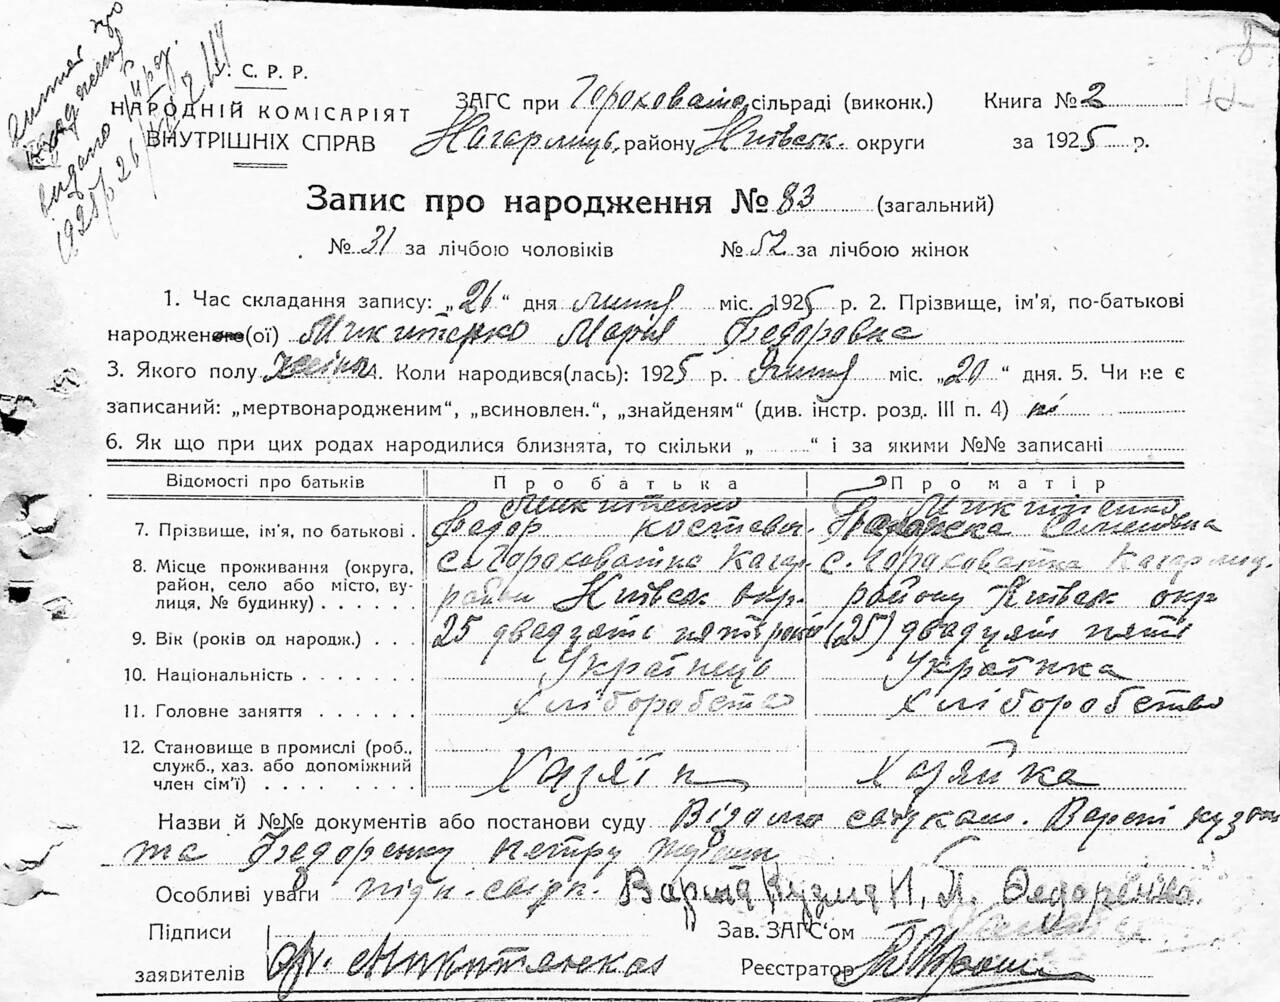 . С. Р. Р.
НАРОДНІЙ КОМІСАРІЯТ
ВНУТРІШНІХ СПРАВ
ЗАГС при Гороховатка сільраді (виконк.)
Книга № 2
Кагарлицьк. району Київськ. округи
за 1925 р.
Запис про народження № 83 (загальний)
№ 31 за лічбою чоловіків № 52 за лічбою жінок
1. Час складання запису: „26“ дня липня міс. 1925 р. 2. Прізвище, ім'я, по-батькові
народженого(ої) Микитенко Марія Федоровна
3. Якого полу Жіноч. Коли народився(лась): 1925 р. Липня міс. „20“ дня. 5. Чи не є
записаний: „мертвонародженим“, „всиновлен.“, „знайденям“ (див. інстр. розд. III п. 4) ні
6. Як що при цих родах народилися близнята, то скільки „ “ і за якими №№ записані
Відомості про батьків Про батька Про матір
Микитенко Микитенко
7. Прізвище, ім'я, по батькові . Федор Семеновна
8. Місце проживання (округа, с. Гороховатка Кагар. с. Гороховатка Кагарлиц.
район, село або місто, ву- район Київськ окр. району Київськ окр
лиця, № будинку) . . . . . .
9. Вік (років од народж.) . . . 25 двадцять пять років (25) двадцять пять
10. Національність . . . . . . . Українець Українка
11. Головне заняття . . . . . . Хліборобство Хліборобство
12. Становище в промислі (роб.,
служб., хаз. або допоміжний Хазяїн Хазяйка
член сім'ї) . . . . . . . . .
Назви й №№ документів або постанови суду
та Федоренку Петру
Особливі уваги підп. свідк. Кузма П. Федоренко
Підписи
Зав. ЗАГС'ом
заявителів Микитенко
Реєстратор